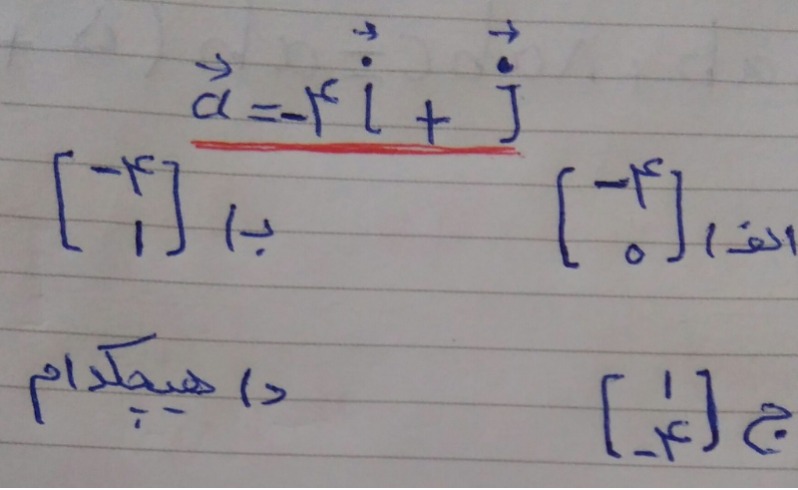 a⃗ = -۴ i⃗ + j⃗
الف) [-۴ ۰] ب) [-۴ ۱]
ج) [۱ -۴] د) هیچکدام